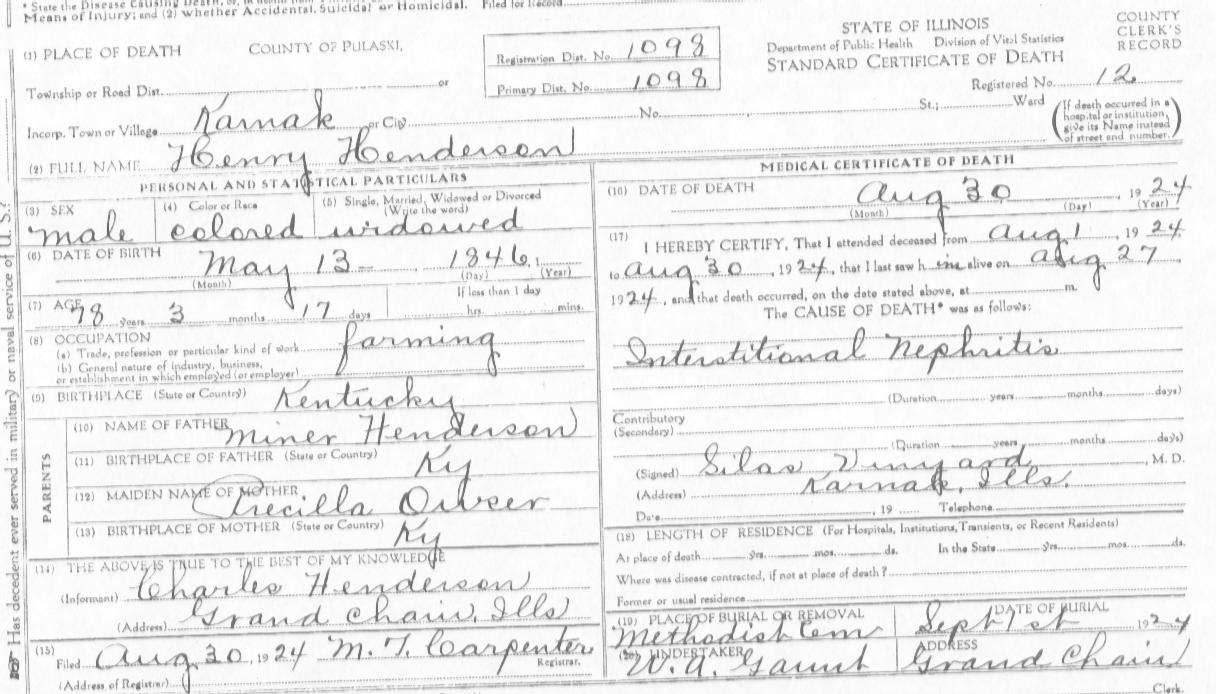 * State the Disease Causing Death, or, in death from
Means of Injury; and (2) whether Accidental, Suicidal or Homicidal. Filed for Record
(1) PLACE OF DEATH COUNTY OF PULASKI,
Registration Dist. No. 1098
Primary Dist. No. 1098
STATE OF ILLINOIS
Department of Public Health Division of Vital Statistics
STANDARD CERTIFICATE OF DEATH
COUNTY CLERK'S RECORD
Registered No. 12
Township or Road Dist. or
Incorp. Town or Village Karnak or City No. St.; Ward
(If death occurred in a hospital or institution, give its Name instead of street and number.)
(2) FULL NAME Henry Henderson
PERSONAL AND STATISTICAL PARTICULARS
(3) SEX male
(4) Color or Race colored
(5) Single, Married, Widowed or Divorced (Write the word) widowed
(6) DATE OF BIRTH May 13 1846
(Month) (Day) (Year)
(7) AGE 78 years 3 months 17 days
If less than 1 day
hrs. mins.
(8) OCCUPATION
(a) Trade, profession or particular kind of work farming
(b) General nature of industry, business,
or establishment in which employed (or employer)
(9) BIRTHPLACE (State or Country) Kentucky
PARENTS
(10) NAME OF FATHER Miner Henderson
(11) BIRTHPLACE OF FATHER (State or Country) Ky
(12) MAIDEN NAME OF MOTHER Precilla
(13) BIRTHPLACE OF MOTHER (State or Country) Ky
(14) THE ABOVE IS TRUE TO THE BEST OF MY KNOWLEDGE
(Informant) Charles Henderson
(Address) Grand Chain, Ills
(15) Filed Aug 30, 1924 M. T. Carpenter
Registrar.
(Address of Registrar)
Has decedent ever served in military or naval service of U. S.?
MEDICAL CERTIFICATE OF DEATH
(16) DATE OF DEATH Aug 30, 1924
(Month) (Day) (Year)
(17) I HEREBY CERTIFY, That I attended deceased from Aug 1, 1924
to Aug 30, 1924, that I last saw h im alive on Aug 27
1924, and that death occurred, on the date stated above, at m.
The CAUSE OF DEATH* was as follows:
Interstitional Nephritis
(Duration years months days)
Contributory
(Secondary)
(Duration years months days)
(Signed) Silas Vinyard, M. D.
(Address) Karnak, Ills.
Date , 19 Telephone
(18) LENGTH OF RESIDENCE (For Hospitals, Institutions, Transients, or Recent Residents)
At place of death yrs. mos. ds. In the State yrs. mos. ds.
Where was disease contracted, if not at place of death?
Former or usual residence
(19) PLACE OF BURIAL OR REMOVAL Methodist Cem
DATE OF BURIAL Sept 1st 1924
(20) UNDERTAKER W. A. Gaunt
ADDRESS Grand Chain
Clerk.